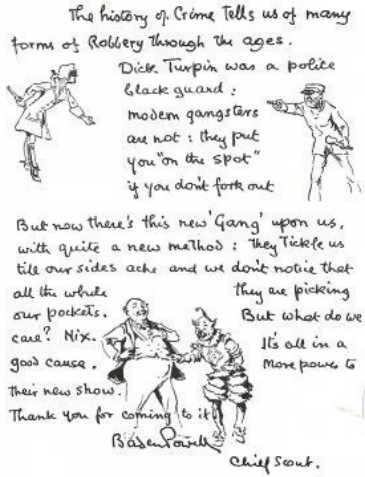 The history of Crime Tells us of many
forms of Robbery through the ages.
Dick Turpin was a polite
black guard:
modern gangsters
are not: they put
you "on the spot"
if you don't fork out
But now there's this new 'Gang' upon us,
with quite a new method: They Tickle us
till our sides ache and we don't notice that
all the while they are picking
our pockets. But what do we
care? Nix. It's all in a
good cause. More power to
their new show.
Thank you for coming to it
Baden Powell
Chief Scout.